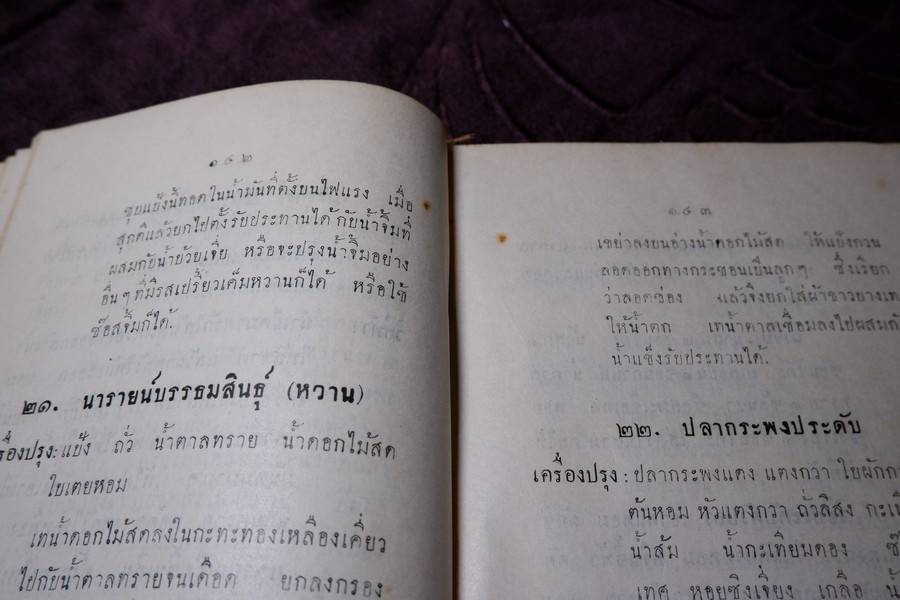 ๑๔๒
ชุยแป้งนี้ทอดในน้ำมันที่ตั้งบนไฟแรง เมื่อ
สุกดีแล้วยกไปตั้งรับประทานได้ กับน้ำจิ้มที่
ผสมกับน้ำบ้วยเจี่ย หรือจะปรุงน้ำจิ้มอย่าง
อื่นๆที่มีรสเปรี้ยวเค็มหวานก็ได้ หรือใช้
ซ๊อสจิ้มก็ได้.
๒๑. นารายณ์บรรธมสินธุ์ (หวาน)
รื่องปรุง: แป้ง ถั่ว น้ำตาลทราย น้ำดอกไม้สด
ใบเตยหอม
เทน้ำดอกไม้สดลงในกะทะทองเหลืองเคี่ยว
ไปกับน้ำตาลทรายจนเดือด ยกลงกรอง
๑๔๓
เขย่าลงบนอ่างน้ำดอกไม้สด ให้แป้งกวน
ลอดออกทางกระชอนเป็นลูกๆ ซึ่งเรียก
ว่าลอดช่อง แล้วจึงยกใส่ผ้าขาวบางเท
ให้น้ำตก เทน้ำตาลเชื่อมลงไปผสมกับ
น้ำแข็งรับประทานได้.
๒๒. ปลากระพงประดับ
เครื่องปรุง: ปลากระพงแดง แตงกวา ใบผักกา
ต้นหอม หัวแตงกวา ถั่วลิสง กะเที
น้ำส้ม น้ำกะเทียมดอง ซ๊
เทศ หอยซิงเจี่ยง เกลือ น้